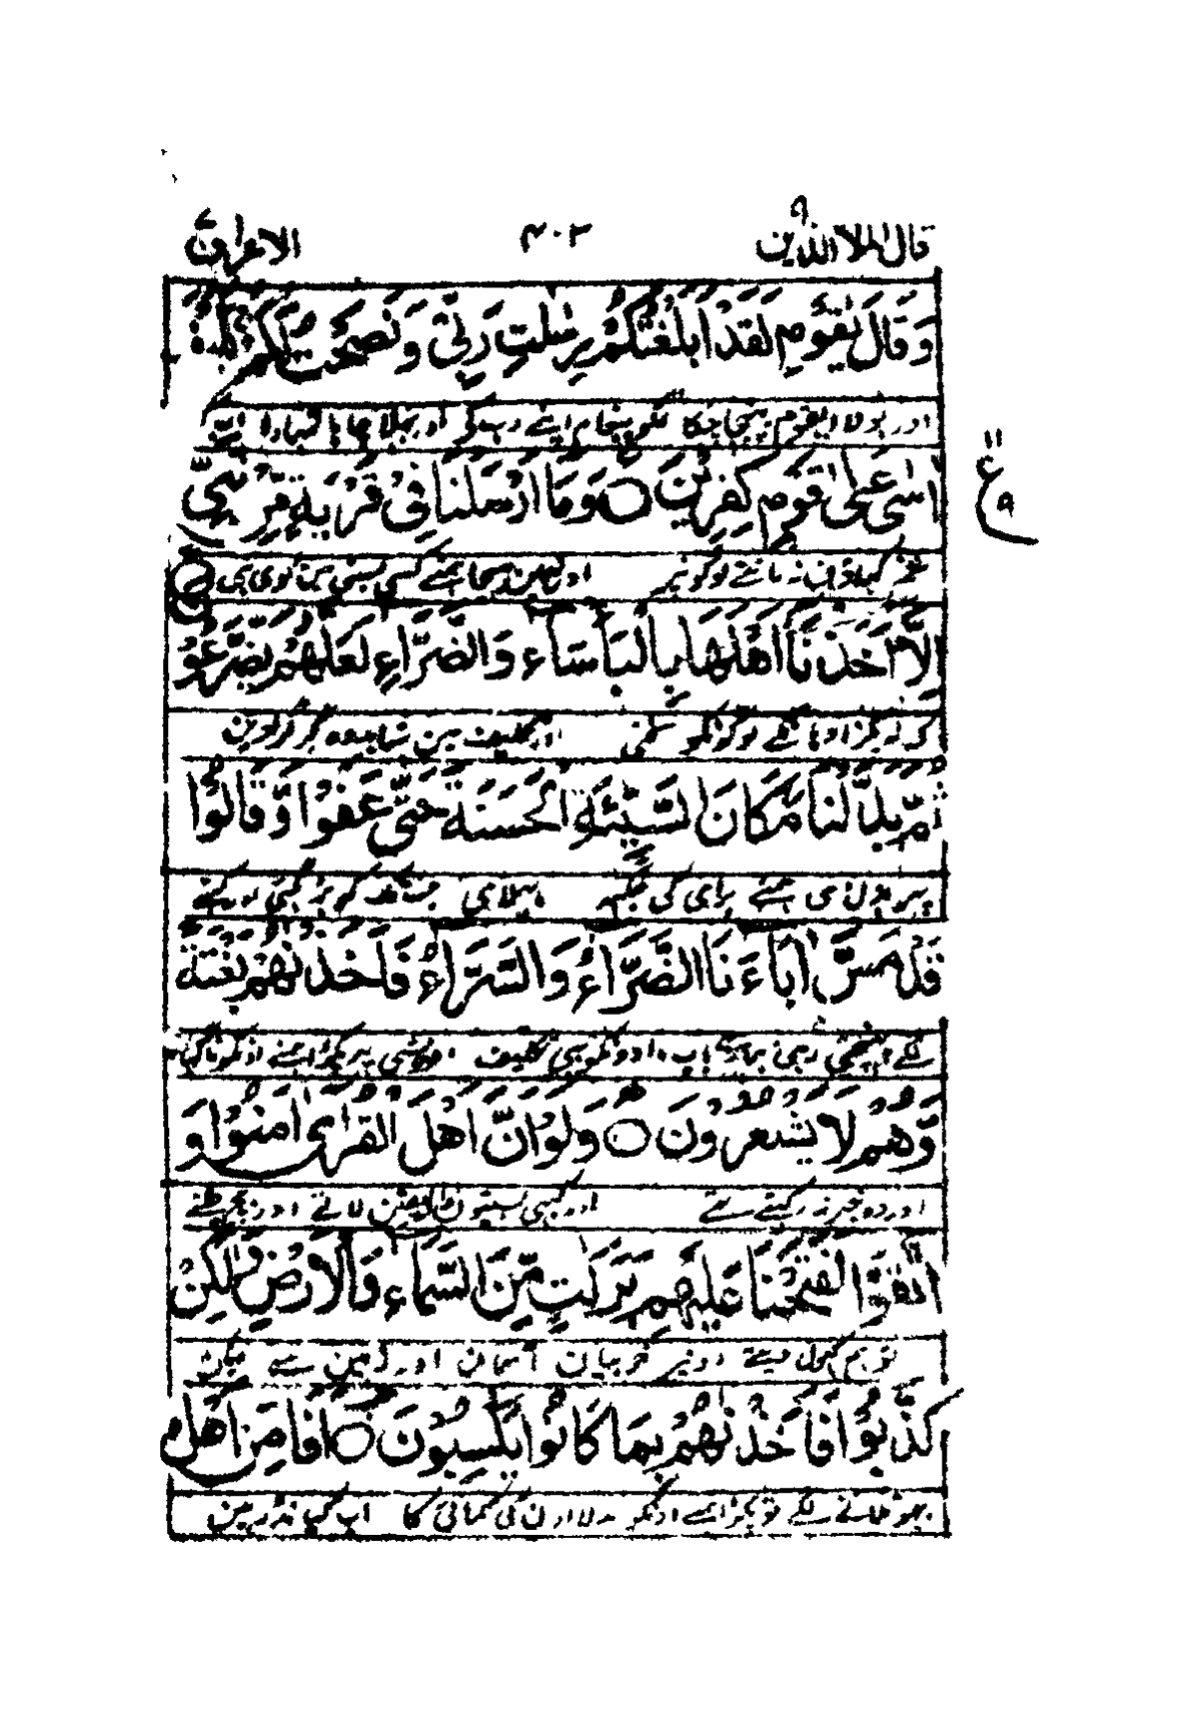 قال الملا الذين ۹ ۴۰۲ الاعراف ۷
وَقَالَ يٰقَوْمِ لَقَدْ اَبْلَغْتُكُمْ رِسٰلٰتِ رَبِّيْ وَنَصَحْتُ لَكُمْ فَكَيْفَ
اور بولا ای قوم پہنچا چکا تمکو پیغام اپنے رب کے اور بھلا چاہا تمہارا اب
اٰسٰى عَلٰى قَوْمٍ كٰفِرِيْنَ ○ وَمَا اَرْسَلْنَا فِيْ قَرْيَةٍ مِّنْ نَّبِيٍّ
۱۱ ع ۹
غم کھاؤں نہ ماننے لوگونپر اور نہین بھیجا ہمنے کسی بستی مین کوی نبی
اِلَّا اَخَذْنَا اَهْلَهَا بِالْبَأْسَاءِ وَالضَّرَّاءِ لَعَلَّهُمْ يَضَّرَّعُوْ
کہ نہ پکڑا وہانکے لوگونکو سختی اور تکلیف مین شاید وہ گڑگڑاوین
ثُمَّ بَدَّلْنَا مَكَانَ السَّيِّئَةِ الْحَسَنَةَ حَتّٰى عَفَوْا وَّقَالُوْا
پہر بدل دی ہمنے برای کی جگہہ بھلای جب تک کو بڑہ گئی اور کہنے
قَدْ مَسَّ اٰبَاءَنَا الضَّرَّاءُ وَالسَّرَّاءُ فَاَخَذْنٰهُمْ بَغْتَةً
لگے پہنچتی رہی ہمارے باپ دادونکو بھی تکلیف اور خوشی پہر پکڑا ہمنے اونکو ناگہان
وَّهُمْ لَا يَشْعُرُوْنَ ○ وَلَوْ اَنَّ اَهْلَ الْقُرٰى اٰمَنُوْا وَ
اور وہ خبر نہ رکہتے تہے اور کبھی بستیون والے یقین لاتے اور بچ چلتے
اتَّقَوْا لَفَتَحْنَا عَلَيْهِمْ بَرَكٰتٍ مِّنَ السَّمَاءِ وَالْاَرْضِ وَلٰكِنْ
تو ہم کھول دیتے اونپر خوبیان آسمان اور زمین سے لیکن
كَذَّبُوْا فَاَخَذْنٰهُمْ بِمَا كَانُوْا يَكْسِبُوْنَ ○ اَفَاَمِنَ اَهْلُ
جھوٹھلانے لگے تو پکڑا ہمنے اونکو بدلا اون کی کمائی کا اب کیا نڈر ہین